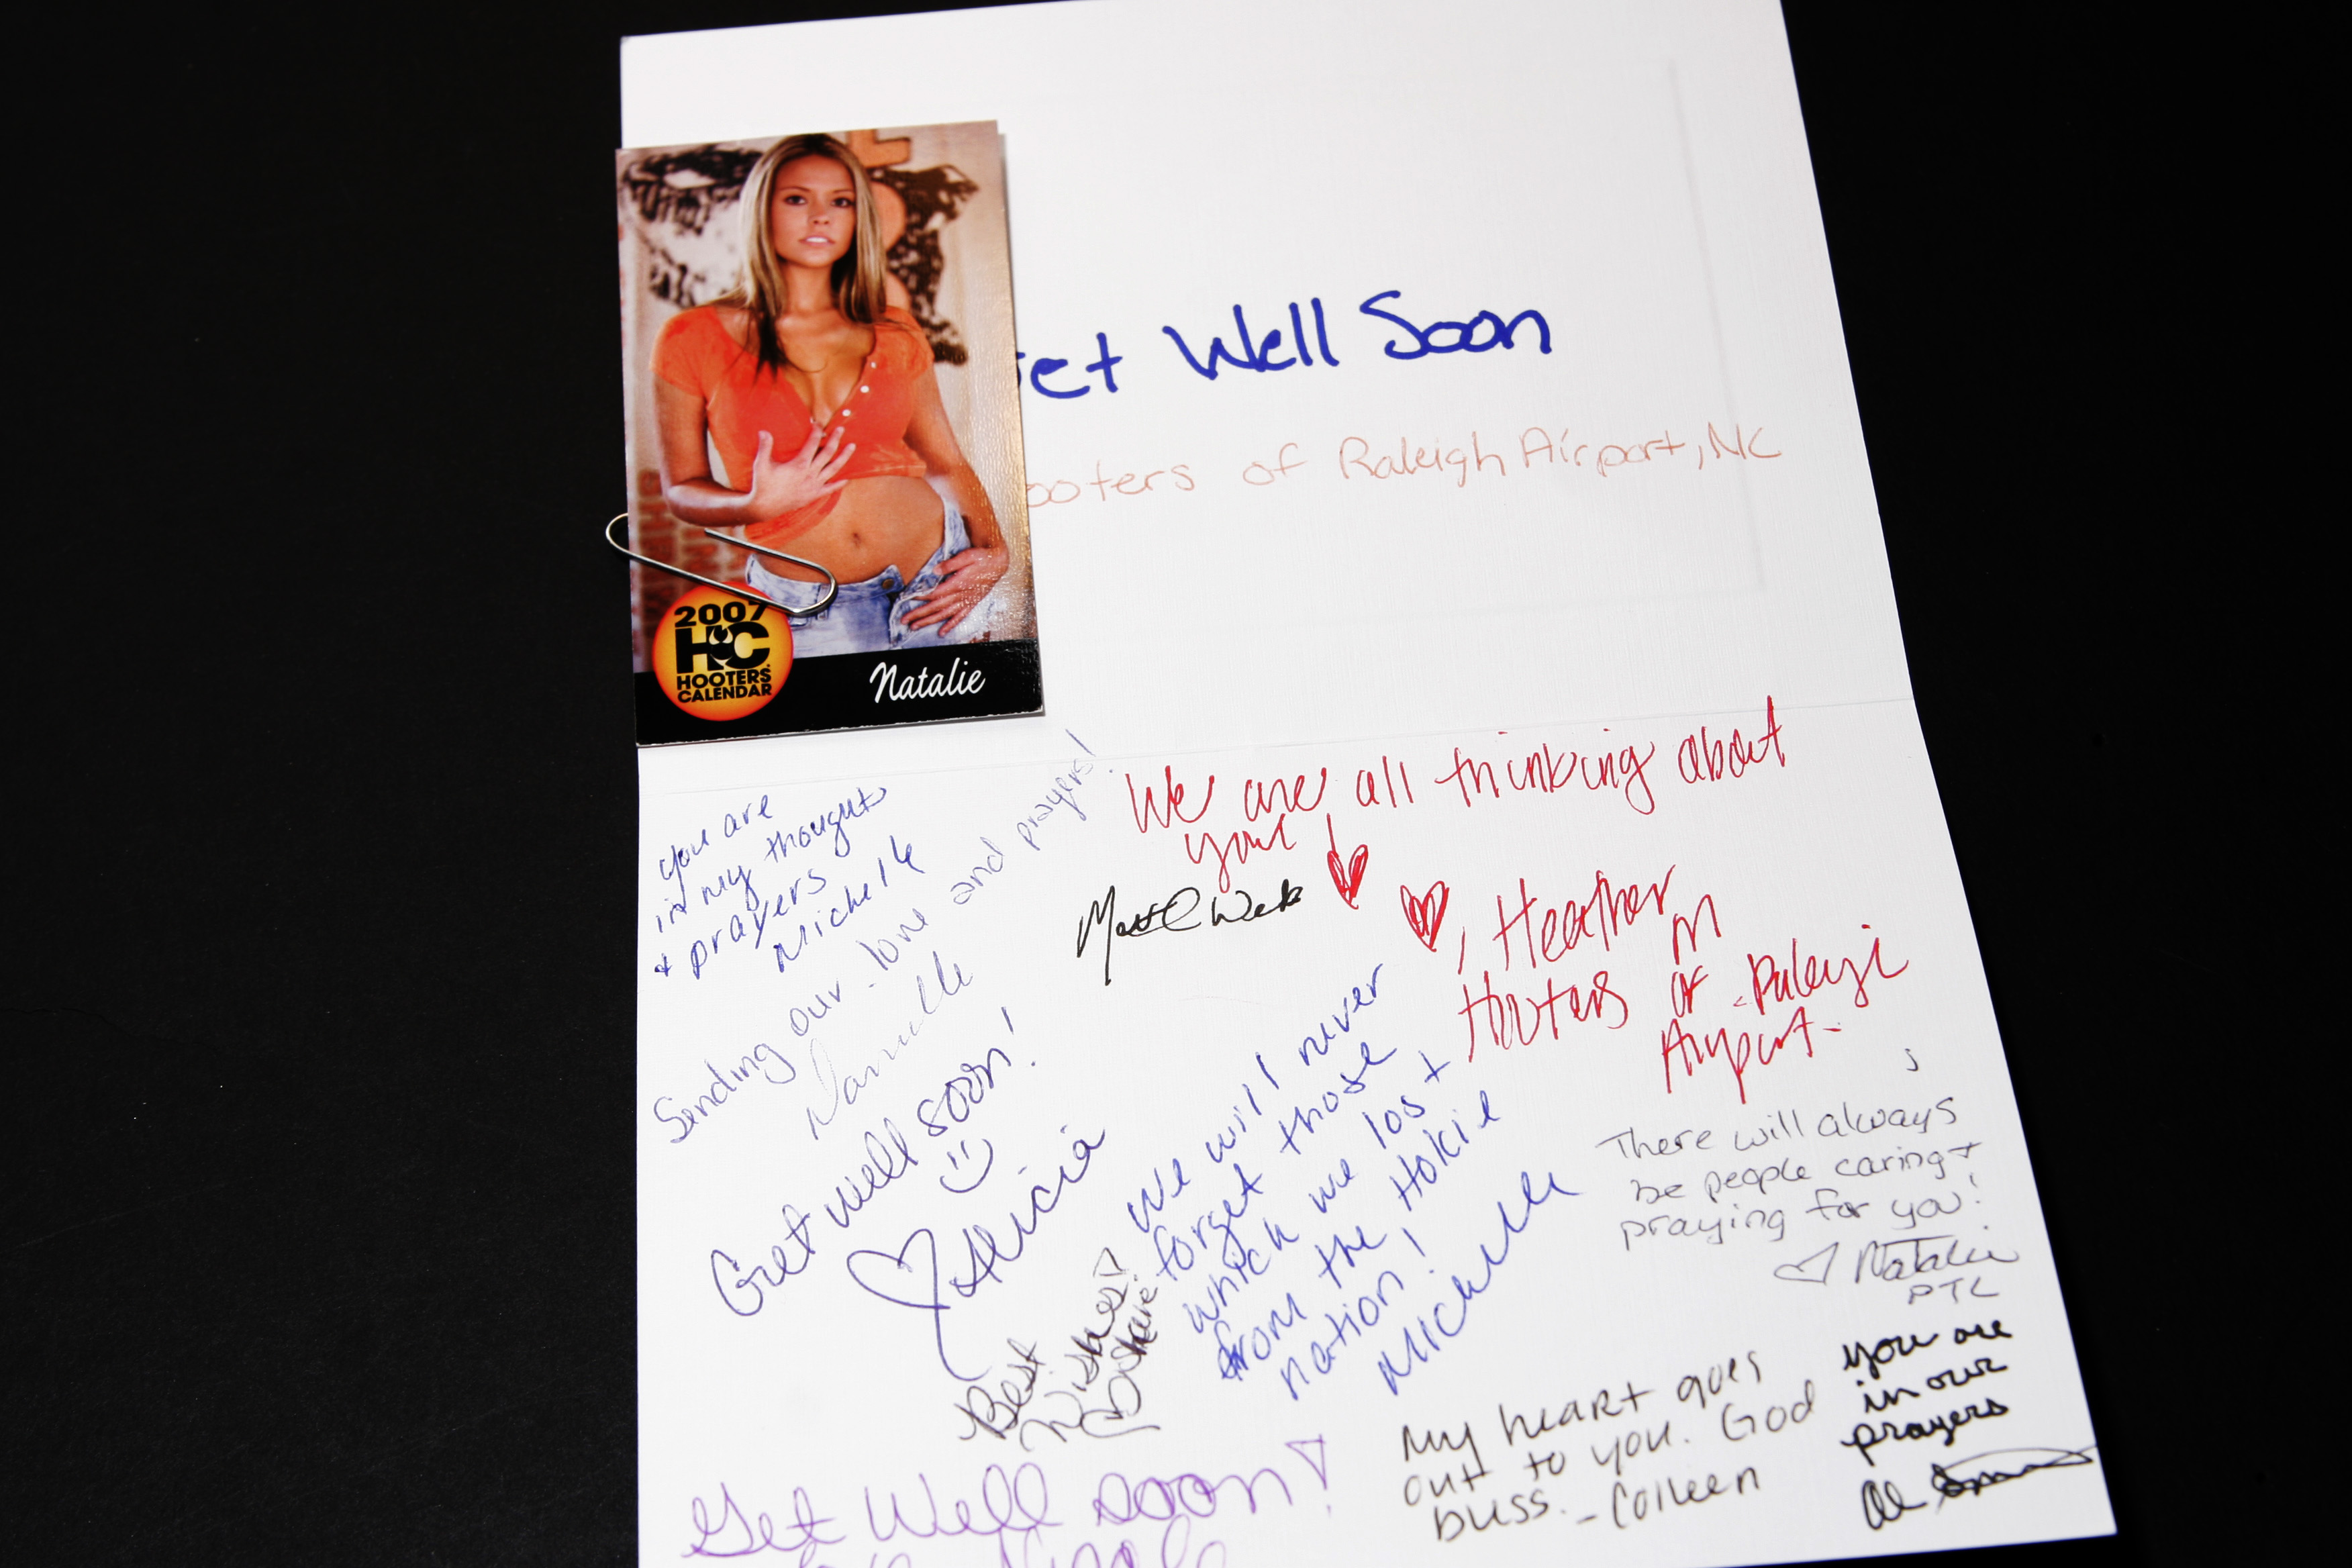 2007
HC
HOOTERS
CALENDAR
Natalie
et Well Soon
ooters of Raleigh Airport, NC
you are
in my thoughts
+ prayers
Michelle
Sending our love and prayers!
Danielle
We are all thinking about
you!
Matt
, Heather
Hooters of Raleigh
Airport
Get well soon!
Alicia
We will never
forget those
which we lost
from the Hokie
nation!
Michelle
There will always
be people caring +
praying for you!
Natalie
PTL
Best
Wishes!
My heart goes
out to you. God
bless. - Colleen
you are
in our
prayers
Get Well soon!
Nicole